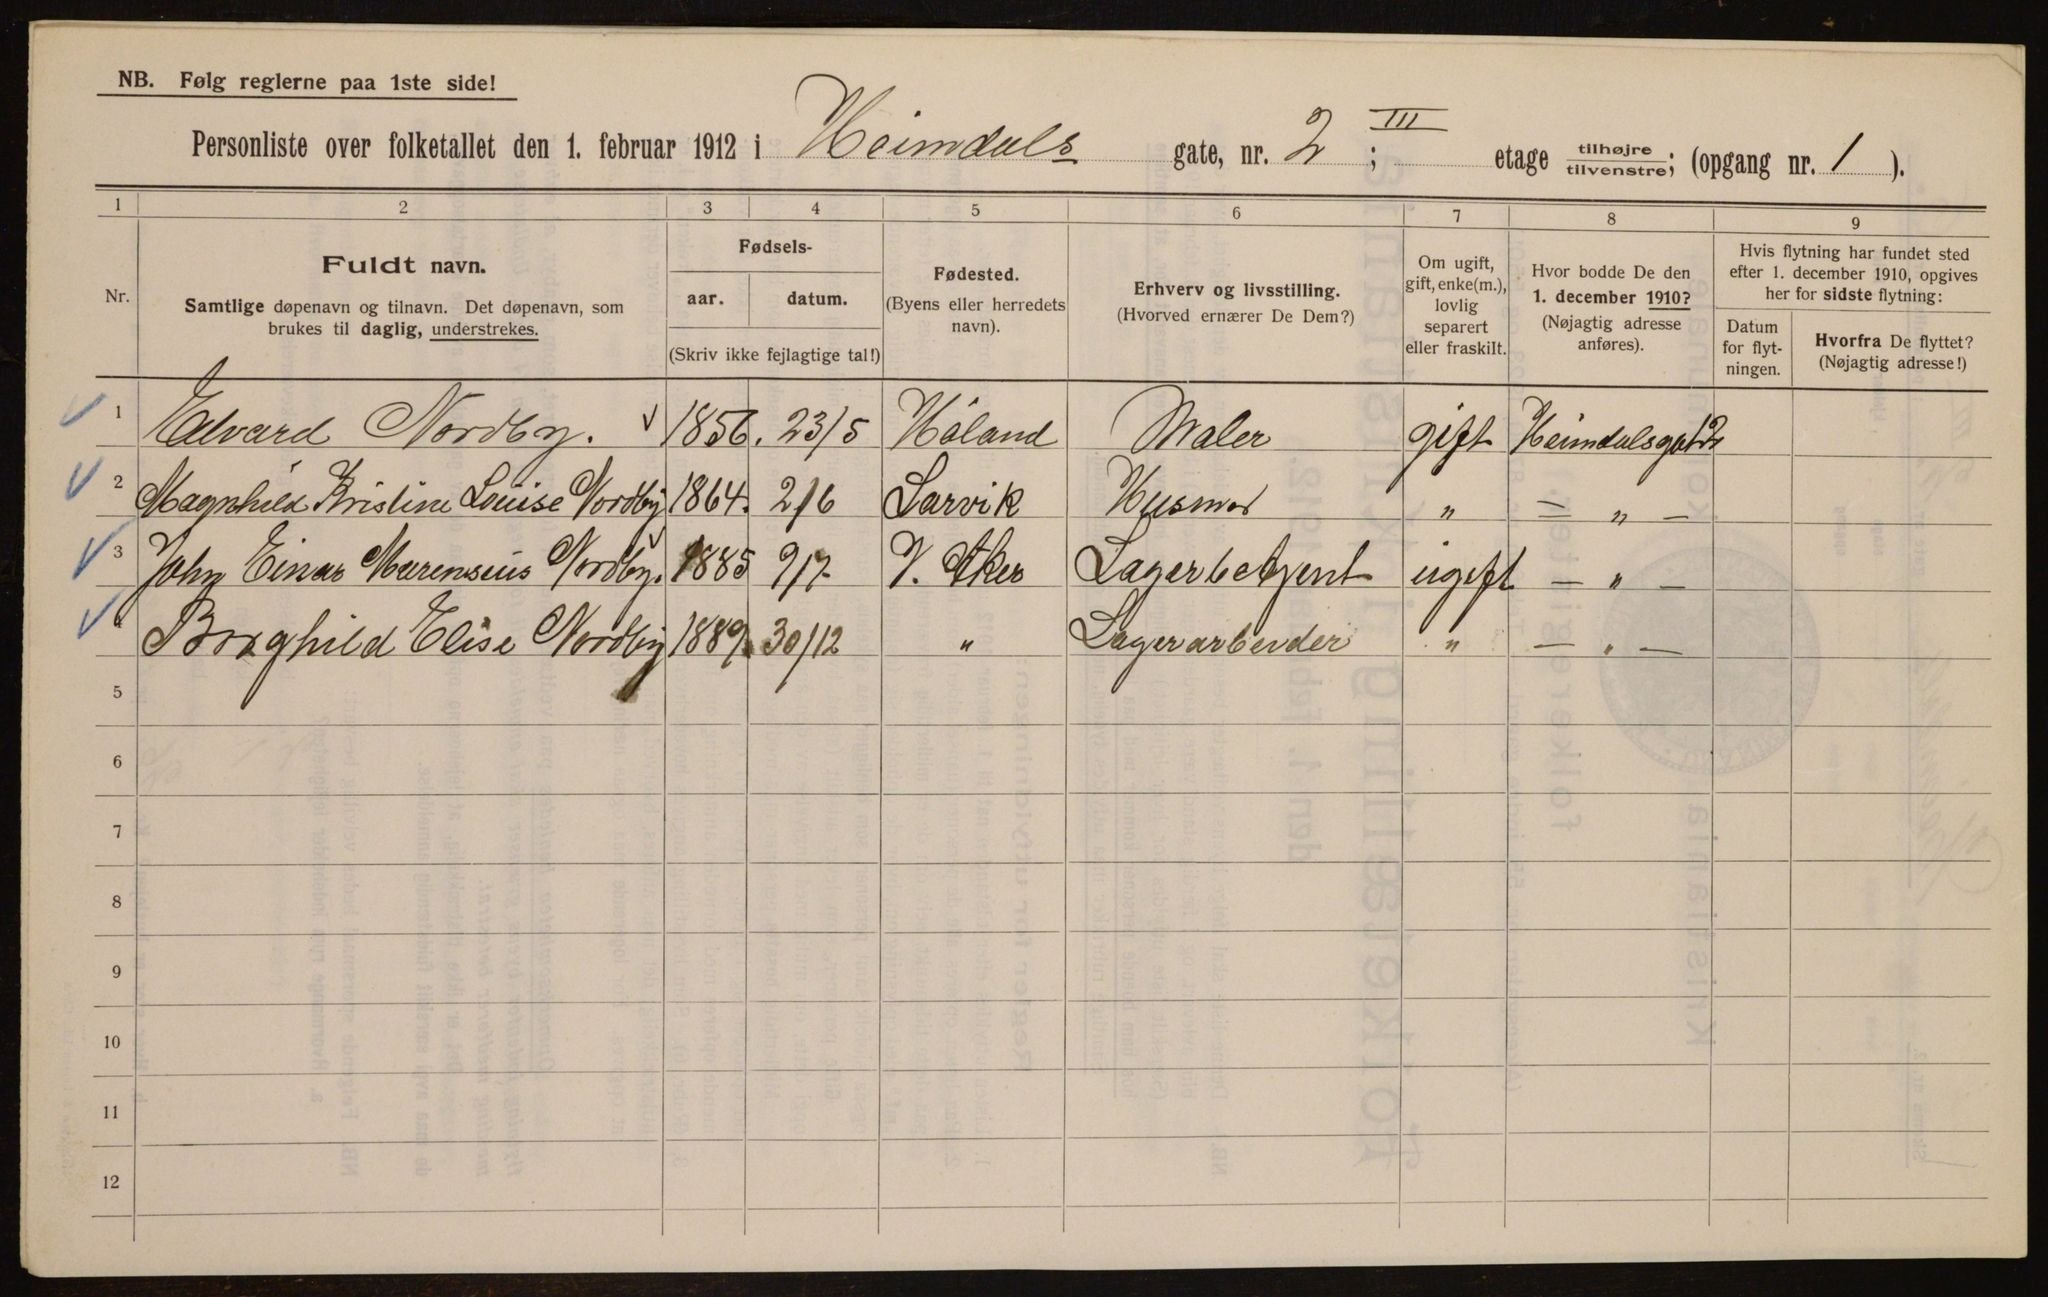 NB. Følg reglerne paa 1ste side!
Personliste over folketallet den 1. februar 1912 i Heimdals gate, nr. 2 ; III etage tilhøjre/tilvenstre; (opgang nr. 1 ).
1 2 3 4 5 6 7 8 9
Nr.
Fuldt navn.
Samtlige døpenavn og tilnavn. Det døpenavn, som
brukes til daglig, understrekes.
Fødsels-
aar. datum.
(Skriv ikke fejlagtige tal!)
Fødested.
(Byens eller herredets
navn).
Erhverv og livsstilling.
(Hvorved ernærer De Dem?)
Om ugift,
gift, enke(m.),
lovlig
separert
eller fraskilt.
Hvor bodde De den
1. december 1910?
(Nøjagtig adresse
anføres).
Hvis flytning har fundet sted
efter 1. december 1910, opgives
her for sidste flytning:
Datum
for flyt-
ningen.
Hvorfra De flyttet?
(Nøjagtig adresse!)
1 Edvard Nordby. 1856. 23/5 Høland Maler gift Heimdalsgat 2
2 Magnhild Kristine Louise Nordby 1864. 2/6 Larvik Husmor " — " —
3 John Einar Marensius Nordby. 1885 9/7 V. Aker Lagerbetjent ugift — " —
4 Borghild Elise Nordby 1889. 30/12 " Lagerarbeider " — " —
5
6
7
8
9
10
11
12